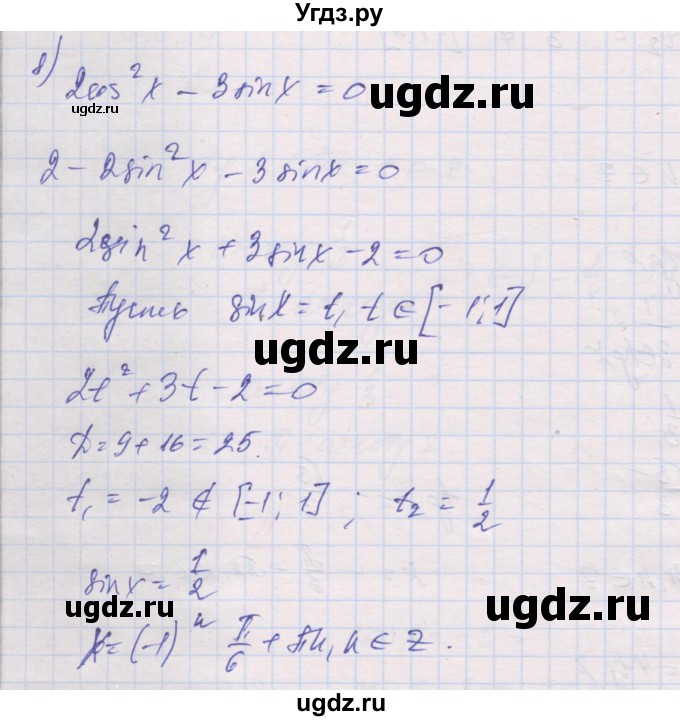 Угдз.ру
8) 2cos²x - 3sinx = 0
ugdz.ru
ugdz.ru
2 - 2sin²x - 3sinx = 0
2sin²x + 3sinx - 2 = 0
Пусть sinx = t, t ∈ [-1; 1]
ugdz.ru
2t² + 3t - 2 = 0
D = 9 + 16 = 25.
t₁ = -2 ∉ [-1; 1] ; t₂ = 1/2
sinx = 1/2
ugdz.ru
ugdz.ru
x = (-1)ⁿ π/6 + πn, n ∈ Z.
ugdz.ru